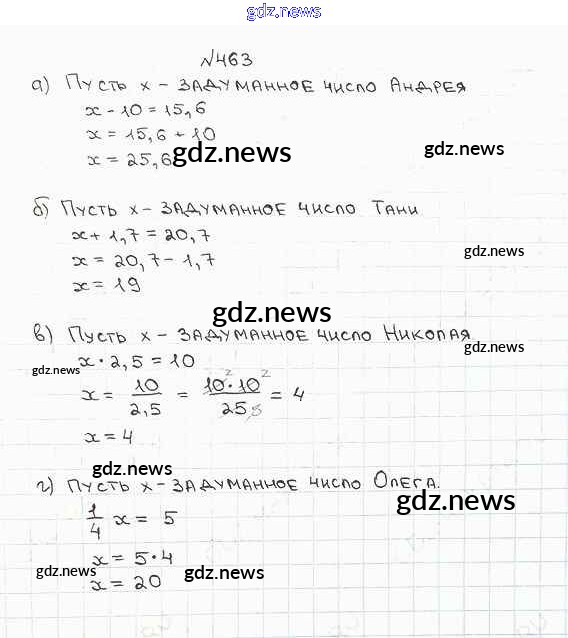 gdz.news
№463
а) Пусть x - задуманное число Андрея
x - 10 = 15,6
x = 15,6 + 10
x = 25,6 gdz.news gdz.news
б) Пусть x - задуманное число Тани
x + 1,7 = 20,7
x = 20,7 - 1,7 gdz.news
x = 19
gdz.news
в) Пусть x - задуманное число Николая
gdz.news
x · 2,5 = 10
gdz.news
x = 10/2,5 = 10² · 10²/25 5 = 4
x = 4
gdz.news
г) Пусть x - задуманное число Олега.
gdz.news
1/4 x = 5
x = 5 · 4
gdz.news gdz.news
x = 20